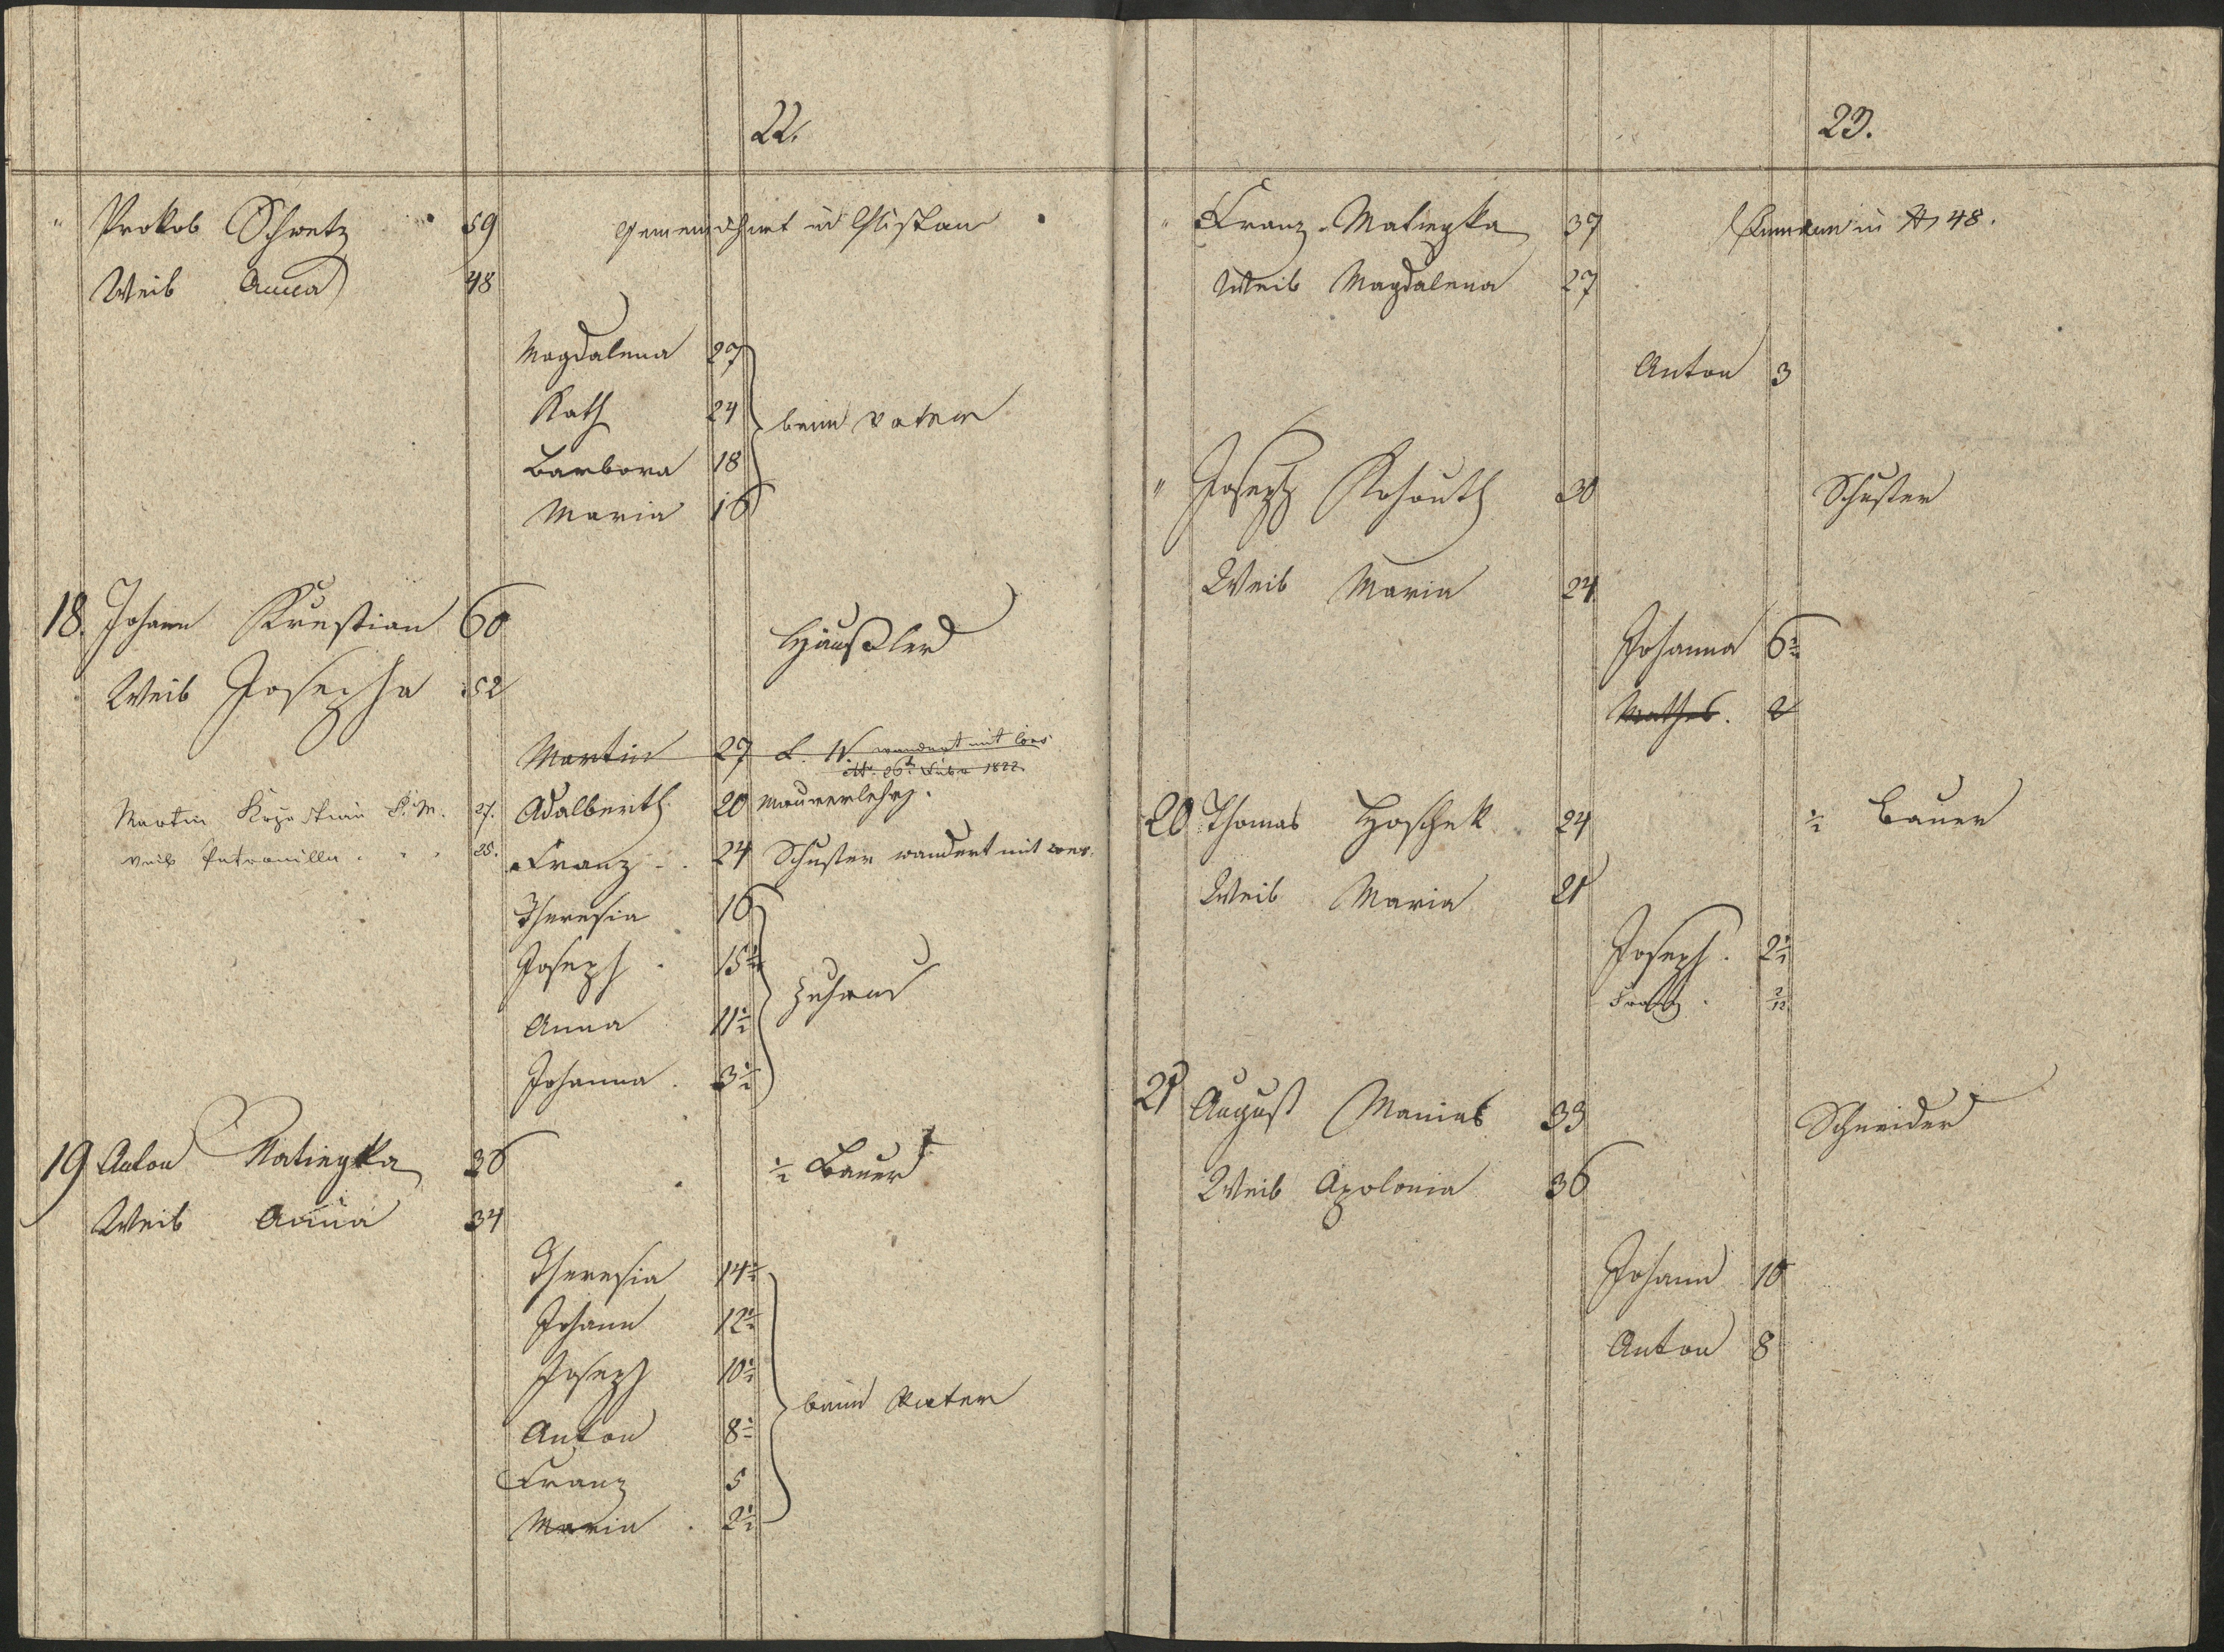 22.
" Prokob Schwetz 59 Gemeindhirt in
Weib Anna 48
Magdalena 27
Kath 24 beim Vater
Barbora 18
Maria 16
18. Johann Krustian 60 Häußler
Weib Josepha 52
Martin 27 L. W. wandert mit
1822.
Martin 27. Adalberth 20 Maurerlehrj.
Weib Petronilla 25. Franz 24 Schuster wandert mit
Theresia 16
Joseph 15½
zuhaus
Anna 11½
Johanna 3½
19 Anton Matiegka 36 ½ Bauer
Weib Anna 34
Theresia 14½
Johann 12½
Joseph 10½
beim Vater
Anton 8½
Franz 5
Maria 2½
23.
" Franz Matiegka 37 in N 48.
Weib Magdalena 27
Anton 3
" Joseph Kohouth 30 Schuster
Weib Maria 24
Johanna 6½
Mathes. 2
20 Thomas Hoschek 24 ½ Bauer
Weib Maria 21
Joseph. 2½
Franz. 2/12
21 August Manias 33 Schneider
Weib Apolonia 36
Johann 10
Anton 8